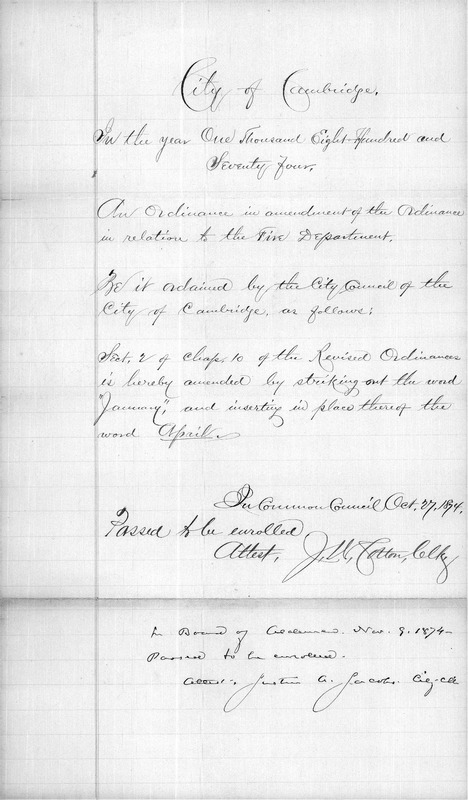 City of Cambridge.
In the year One Thousand Eight Hundred and
Seventy four.
An Ordinance in amendment of the Ordinance
in relation to the Fire Department.
Be it ordained by the City Council of the
City of Cambridge, as follows:
Sect. 2 of chap. 10 of the Revised Ordinances
is hereby amended by striking out the word
"January," and inserting in place thereof the
word April.
In Common Council Oct. 27, 1874.
Passed to be enrolled
Attest, J. W. Cotton, Clk
In Board of Aldermen. Nov. 9. 1874
Passed to be enrolled.
Attest, Justin A. Jacobs. City Clk